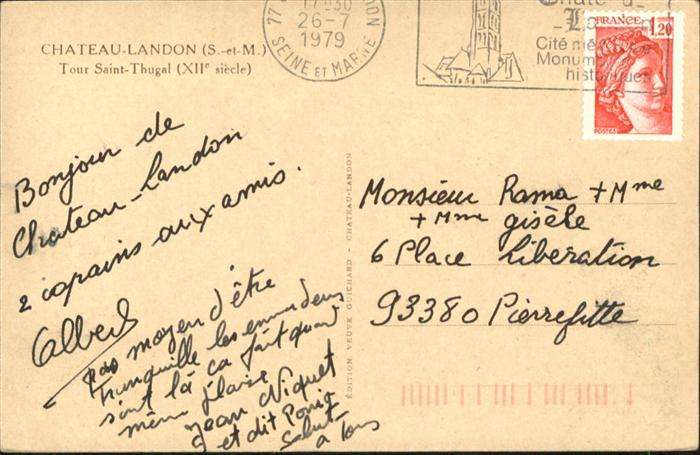 CHATEAU-LANDON (S.-et-M.)
Tour Saint-Thugal (XIIe siècle)
77
17H30
26-7
1979
SEINE ET MARNE
Cité mé
Monum
histor
FRANCE
1,20
POSTES
Bonjour de
Chateau-Landon
2 copains aux amis.
Albert
pas moyen d'être
tranquille les emmerdeurs
sont là ca fait quand
même plaisir
Jean
et dit
Salut
a tous
EDITION VEUVE GUICHARD - CHATEAU-LANDON
Monsieur Rama + Mme
+ Mme gisèle
6 Place libération
93380 Pierrefitte